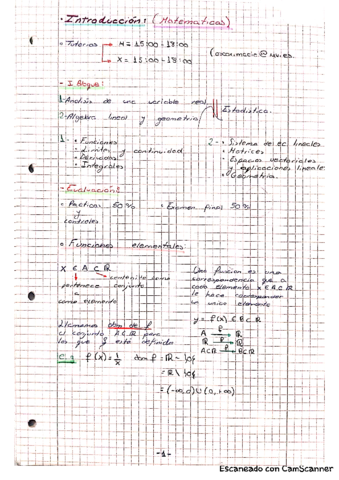 · Introducción: (Matemáticas)
- Tutorías → M = 15:00 - 18:00
→ X = 15:00 - 18:00
- I Bloque:
1-Análisis de una variable real
Estadística.
2-Algebra lineal y geometría
1- · Funciones
· Límite y continuidad
· Derivadas
· Integrales
2- · Sistema de ec. lineales
· Matrices
· Espacios vectoriales
y aplicaciones lineales
· Geometría.
- Evaluación:
· Práctica 50%
y
controles
· Examen final 50%
· Funciones elementales
X ∈ A ⊂ ℝ
contenido como
conjunto
pertenece
a
como elemento
Una función es una
correspondencia que a
cada elemento x ∈ A ⊂ ℝ
le hace corresponder
un único elemento
y = f(x) ∈ B ⊂ ℝ
Llamamos dom de f
al conjunto A ⊂ ℝ para
los que f está definido
A f→ ℝ
ℝ f→ ℝ
A ⊂ ℝ f→ B ⊂ ℝ
e.g. f(x) = 1/x dom f = ℝ - {0}
= ℝ \ {0}
= (-∞, 0) ∪ (0, +∞)
-1-
Escaneado con CamScanner